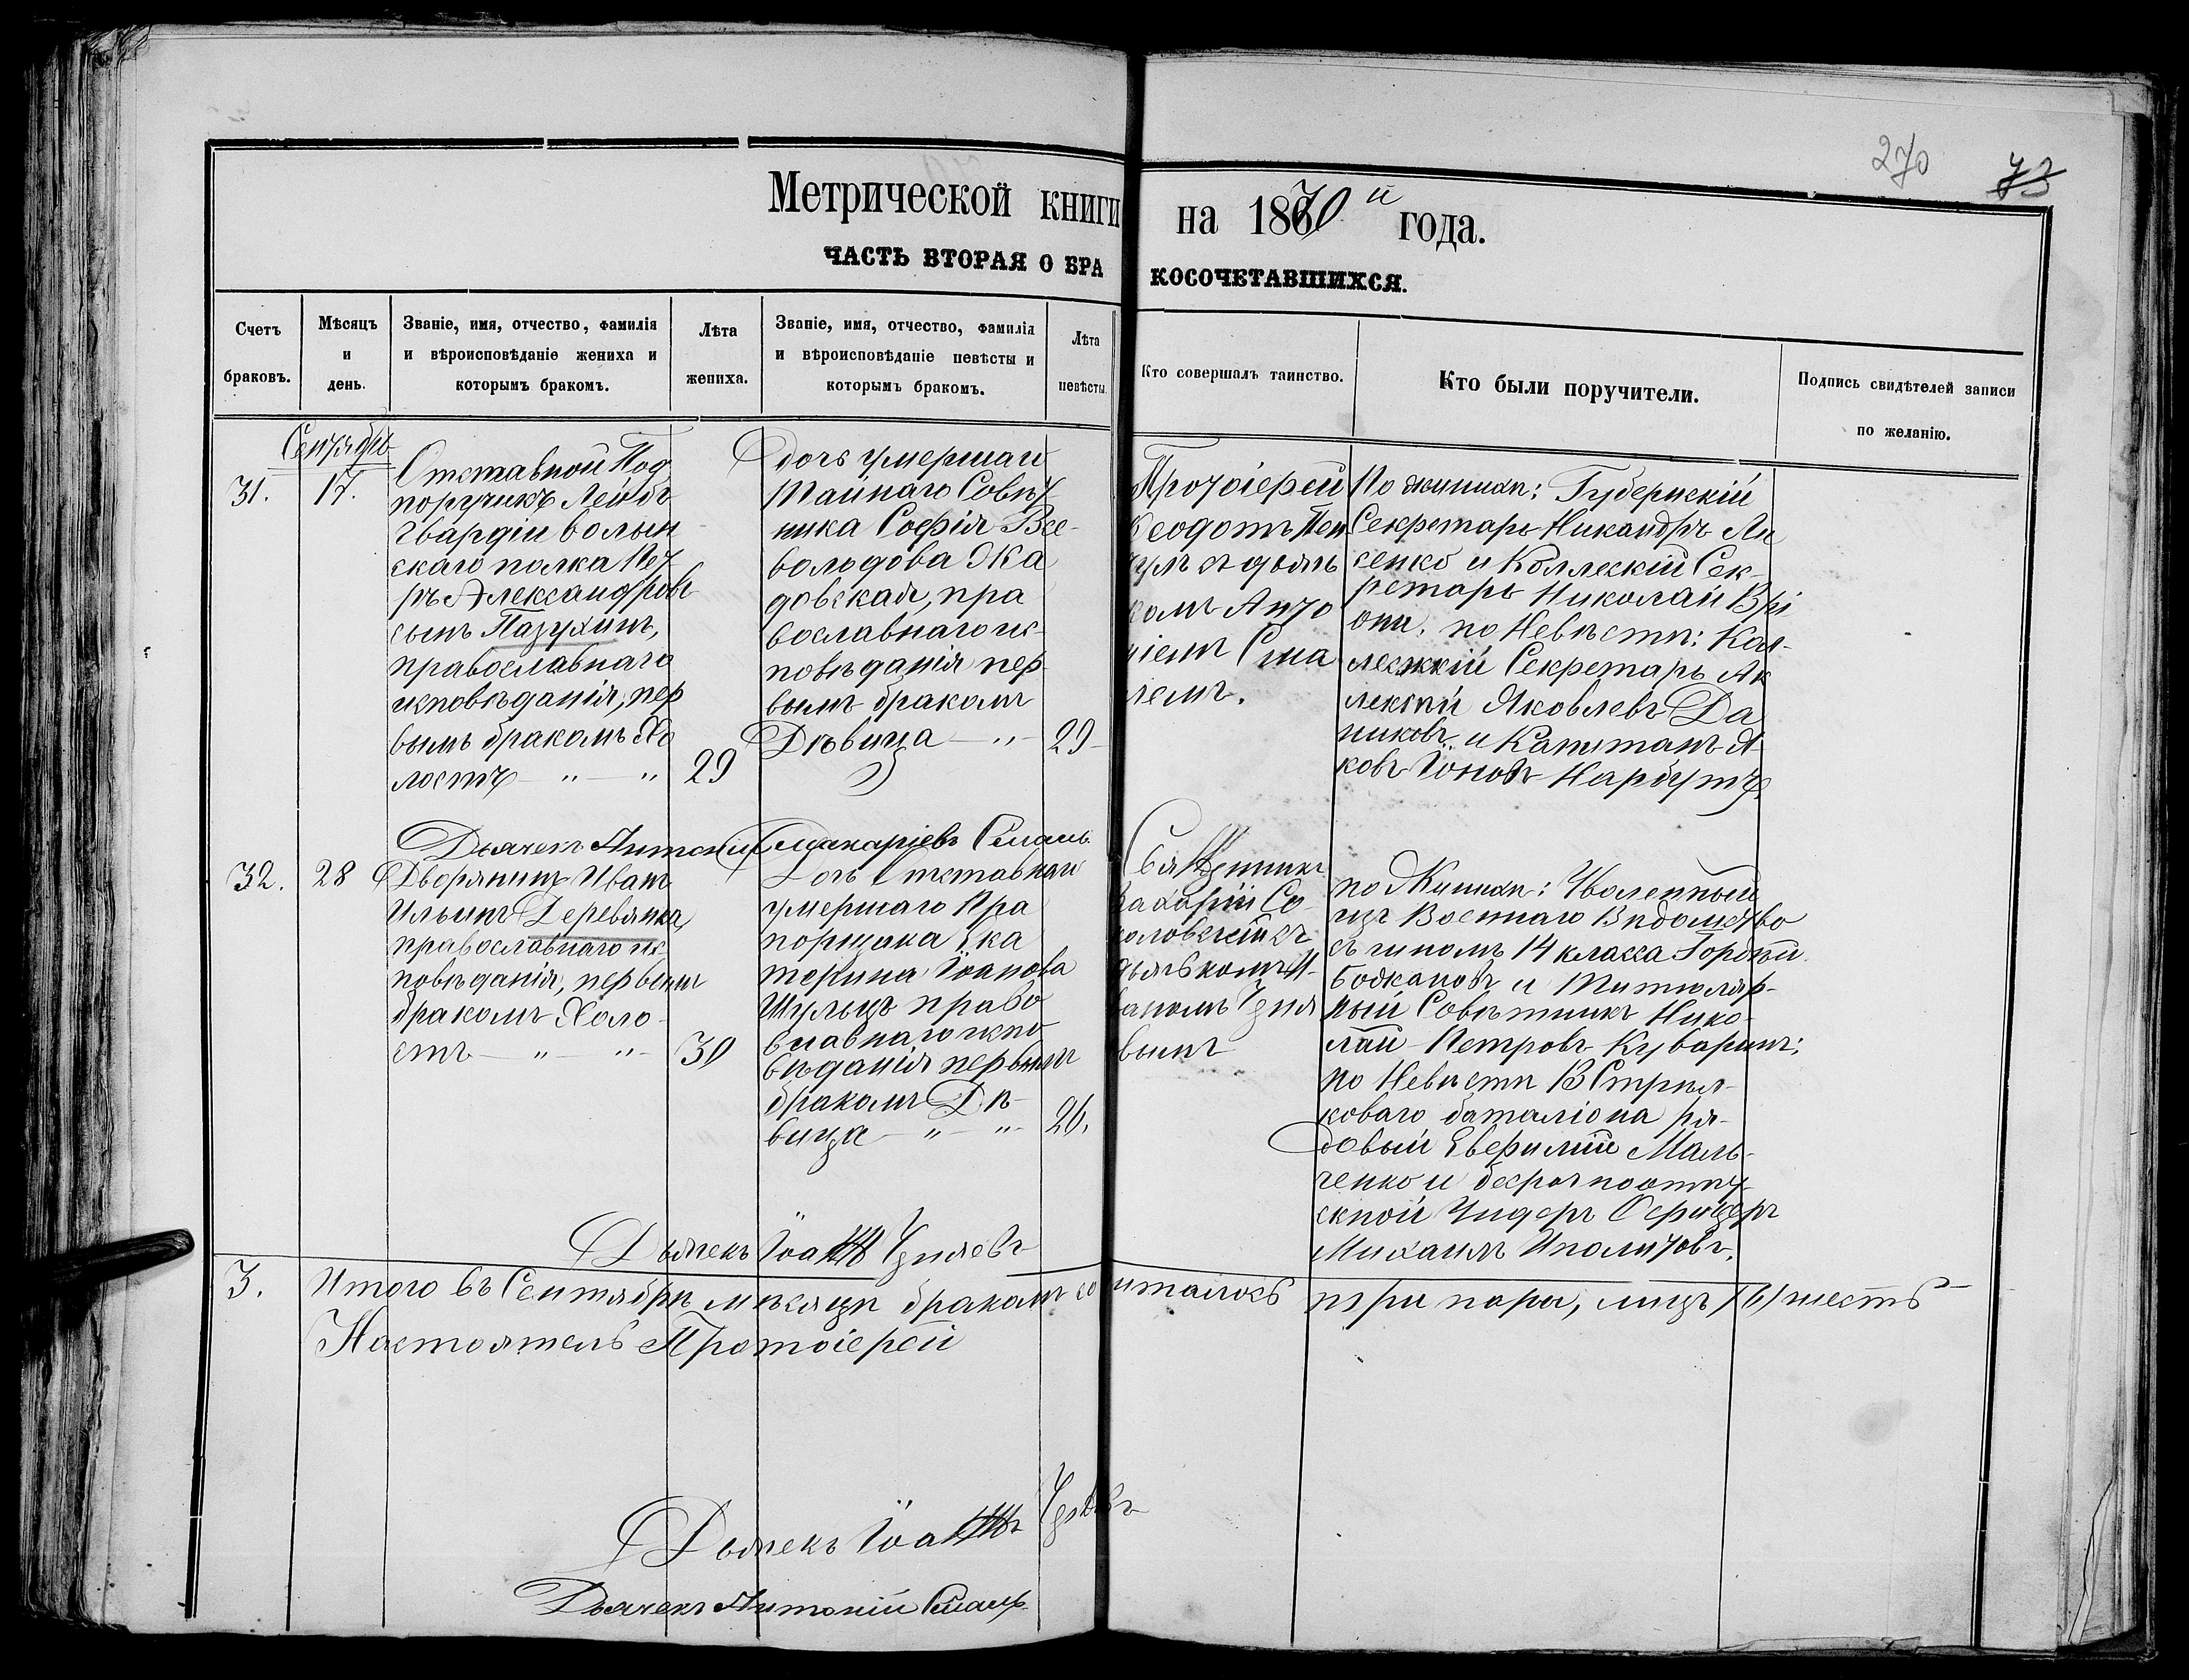 270 73
Метрической книги на 1870й года.
ЧАСТЬ ВТОРАЯ О БРАКОСОЧЕТАВШИХСЯ.
Счетъ браковъ.
Мѣсяцъ и день.
Званіе, имя, отчество, фамилія
и вѣроисповѣданіе жениха и
которымъ бракомъ.
Лѣта жениха.
Званіе, имя, отчество, фамилія
и вѣроисповѣданіе невѣсты и
которымъ бракомъ.
Лѣта невѣсты.
Кто совершалъ таинство.
Кто были поручители.
Подпись свидѣтелей записи
по желанію.
Сентябрь
31. 17.
Отставной Под
поручикъ Лейбъ
Гвардіи волын
скаго полка Пет
ръ Александровъ
сынъ Пазухинъ,
православнаго
исповѣданія, пер
вымъ бракомъ Хо
лостъ — " — "
29
Дочь умершаго
Тайнаго Совѣт
ника Софія Все-
володова Жа
довская, пра
вославнаго ис-
повѣданія пер
вымъ бракомъ
Дѣвица — " —
29
Протоіерей
Ѳеодотъ
съ дьяч
комъ Анто
ніемъ Сма
лемъ.
По женихѣ: Губернскій
Секретарь Никандръ Ли
сенко и Коллескій Сек-
ретарь Николай Врі
они. по Невѣстѣ: Кол-
лежскій Секретарь Ал
лексѣй Яковлевъ Да
никовъ и Капитанъ Я
ковъ Іоновъ Нарбутъ.
Дьячекъ Антоній Макаріевъ Смаль
32. 28
Дворянинъ Иванъ
Ильинъ Деревянка
православнаго ис-
повѣданія, первымъ
бракомъ Холо-
стъ — " — "
30
Дочь Отставнаго
умершаго Пра
порщика Ека
терина Іоанова
Шульцъ право
славнаго испо
вѣданія первымъ
бракомъ Дѣ-
вица — " — "
26.
Священникъ
Захарій Со
коловскій съ
дьячкомъ И-
ваномъ Узня
вымъ
по Женихѣ: Уволенный
изъ Военнаго Вѣдомство
съ чиномъ 14 класса Гордѣй
Божановъ и Титюляр-
ный Совѣтникъ Нико-
лай Петровъ Куваринъ:
по Невѣстѣ В Стрѣл-
коваго баталіона ря-
довый Еверилій Маль-
ченко и безрочноотпу-
скной Ундеръ Офицеръ
Михаилъ Иполитовъ.
Дьячекъ Іоаннъ Узняевъ
3. Итого въ Сентябрѣ мѣсяцѣ бракомъ сочиталось три пара, лицъ (6) шесть
Настоятель Протоіерей
Дьячекъ Іоаннъ Узняевъ
Дьячекъ Антоній Смаль